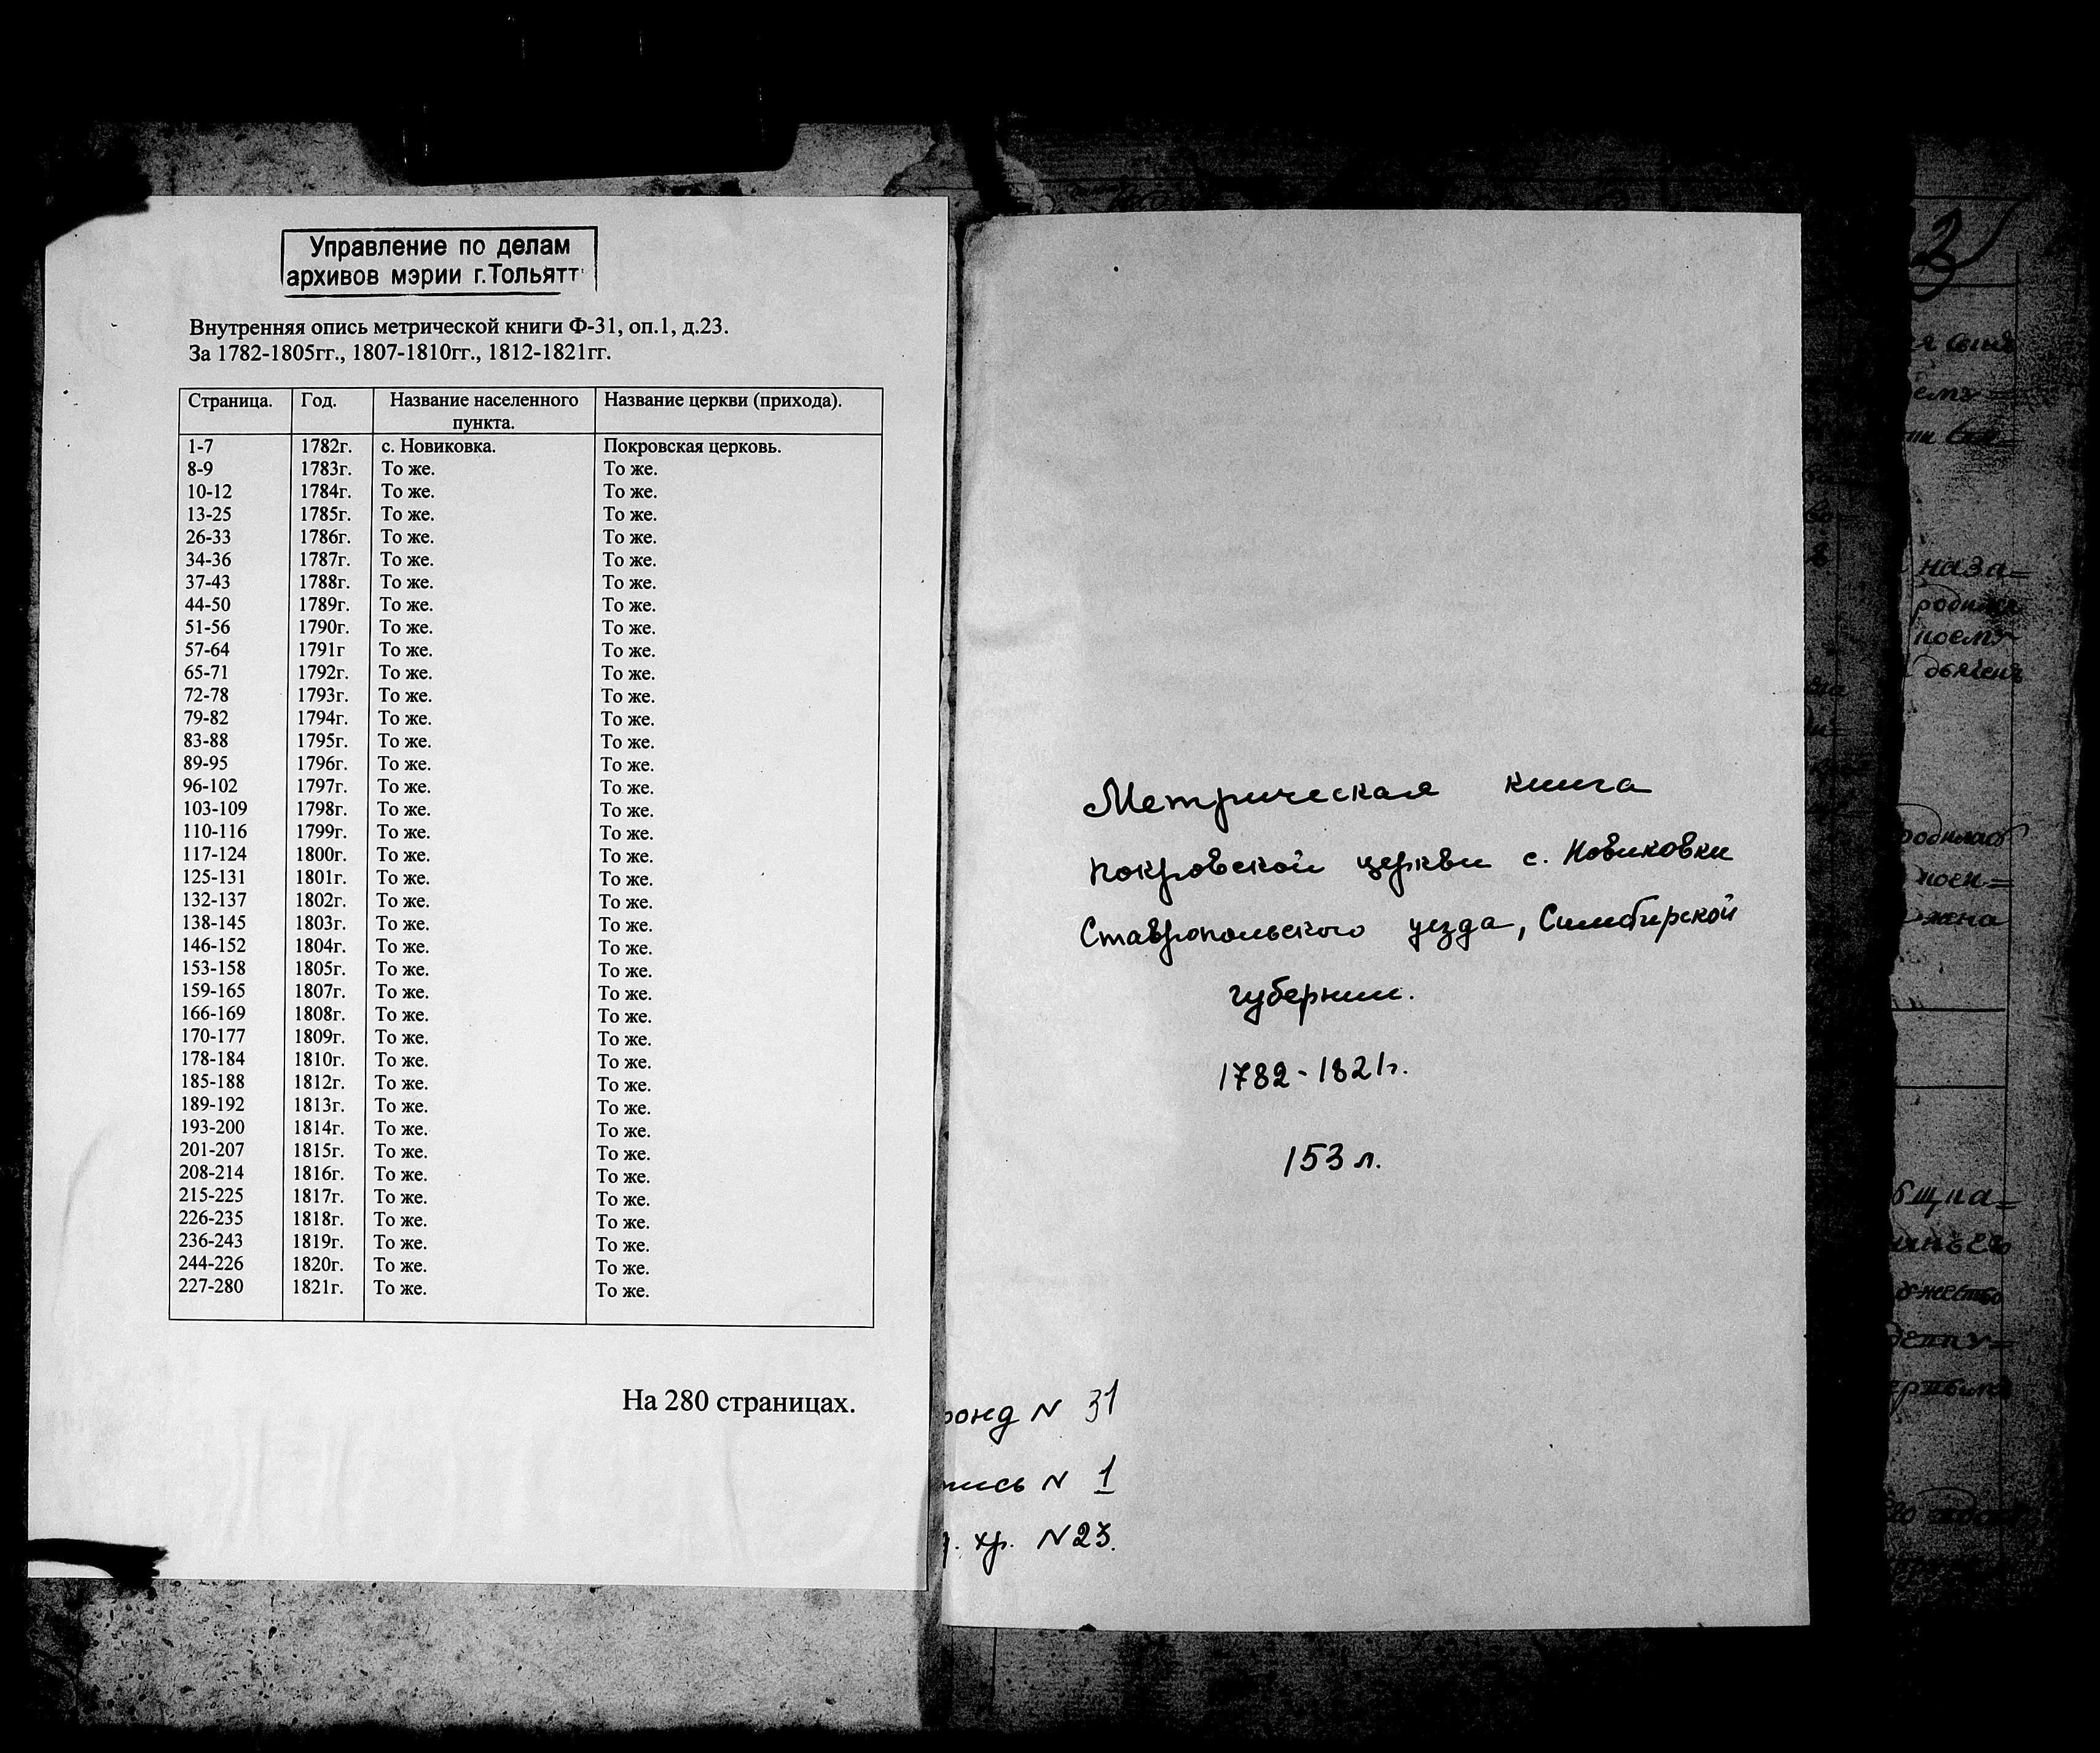 Управление по делам
архивов мэрии г.Тольятт
Внутренняя опись метрической книги Ф-31, оп.1, д.23.
За 1782-1805гг., 1807-1810гг., 1812-1821гг.
Страница. Год. Название населенного пункта. Название церкви (прихода).
1-7 1782г. с. Новиковка. Покровская церковь.
8-9 1783г. То же. То же.
10-12 1784г. То же. То же.
13-25 1785г. То же. То же.
26-33 1786г. То же. То же.
34-36 1787г. То же. То же.
37-43 1788г. То же. То же.
44-50 1789г. То же. То же.
51-56 1790г. То же. То же.
57-64 1791г То же. То же.
65-71 1792г. То же. То же.
72-78 1793г. То же. То же.
79-82 1794г. То же. То же.
83-88 1795г. То же. То же.
89-95 1796г. То же. То же.
96-102 1797г. То же. То же.
103-109 1798г. То же. То же.
110-116 1799г. То же. То же.
117-124 1800г. То же. То же.
125-131 1801г. То же. То же.
132-137 1802г. То же. То же.
138-145 1803г. То же. То же.
146-152 1804г. То же. То же.
153-158 1805г. То же. То же.
159-165 1807г. То же. То же.
166-169 1808г. То же. То же.
170-177 1809г. То же. То же.
178-184 1810г. То же. То же.
185-188 1812г. То же. То же.
189-192 1813г. То же. То же.
193-200 1814г. То же. То же.
201-207 1815г. То же. То же.
208-214 1816г. То же. То же.
215-225 1817г. То же. То же.
226-235 1818г. То же. То же.
236-243 1819г. То же. То же.
244-226 1820г. То же. То же.
227-280 1821г. То же. То же.
На 280 страницах.
Метрическая книга
покровской церкви с. Новиковки
Ставропольского уезда, Симбирской
губернии.
1782-1821г.
153 л.
онд N 31
пись N 1
. хр. N 23.